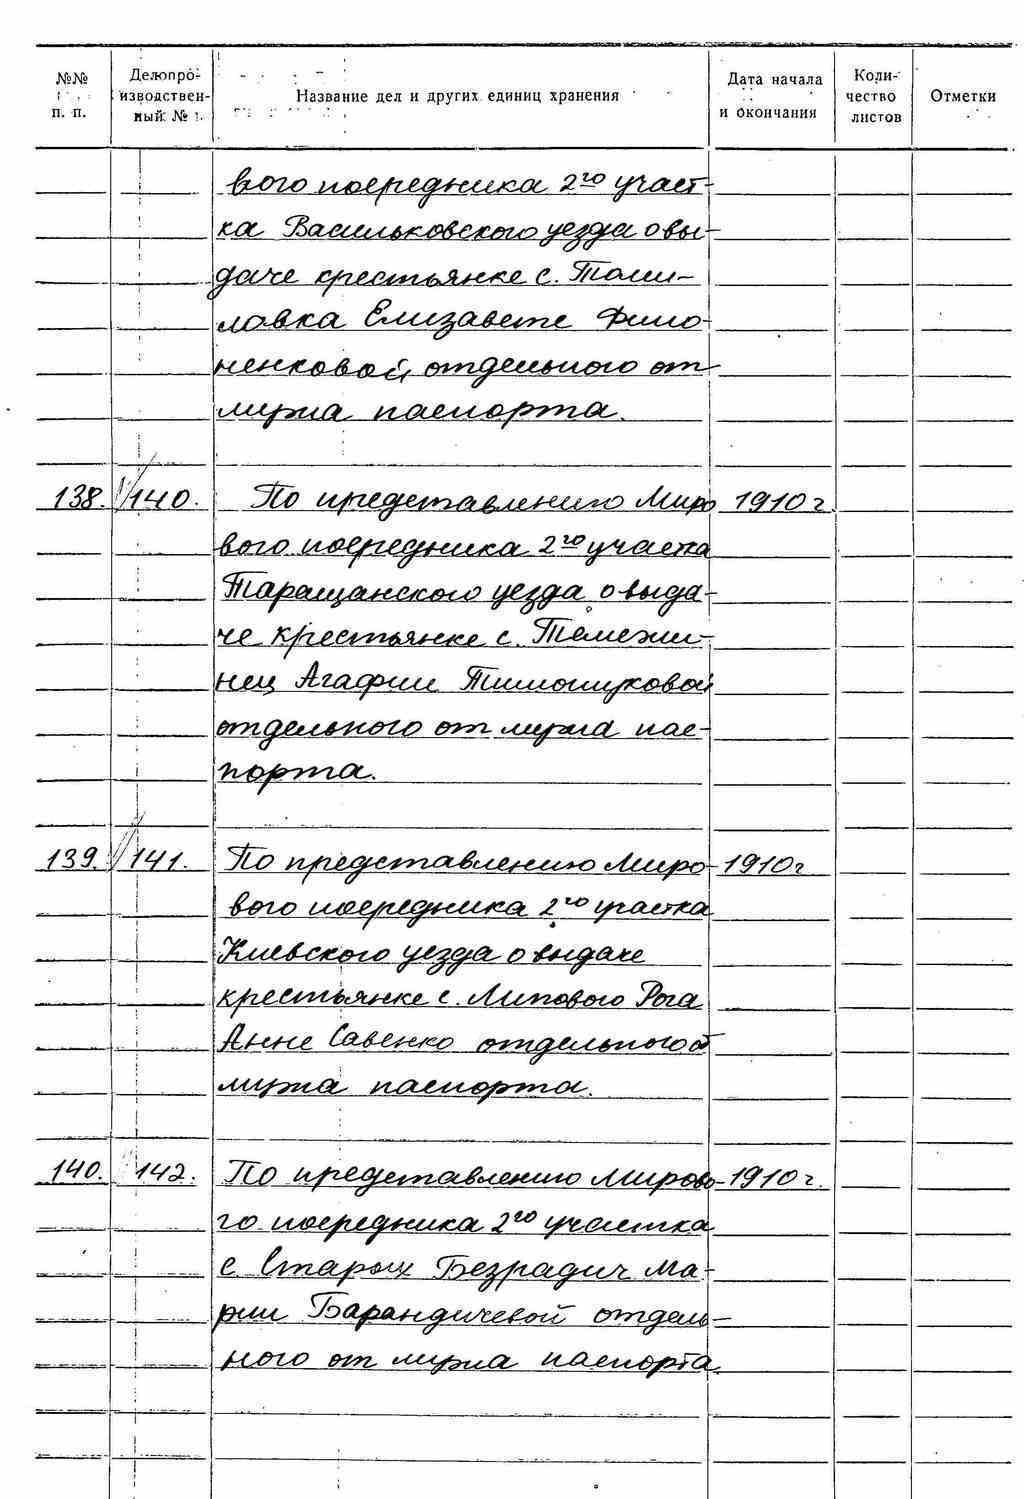 №№ п. п. Делопроизводственный № Название дел и других единиц хранения Дата начала и окончания Количество листов Отметки
вого посредника 2го участ-
ка Васильковского уезда о вы-
даче крестьянке с. Томи-
ловка Елизавете Фило-
ненковой отдельного от
мужа паспорта.
138. 140. По представлению Миро 1910 г.
вого посредника 2го участка
Таращанского уезда о выда-
че крестьянке с. Тележи-
нец Агафии Тимошуковой
отдельного от мужа пас-
порта.
139. 141. По представлению Миро- 1910 г
вого посредника 2го участка
Киевского уезда о выдаче
крестьянке с. Липового Рога
Анне Савенко отдельного от
мужа паспорта.
140. 142. По представлению Мирово- 1910 г.
го посредника 2го участка
с Старых Безрадич Ма-
рии Барандичевой отдель-
ного от мужа паспорта